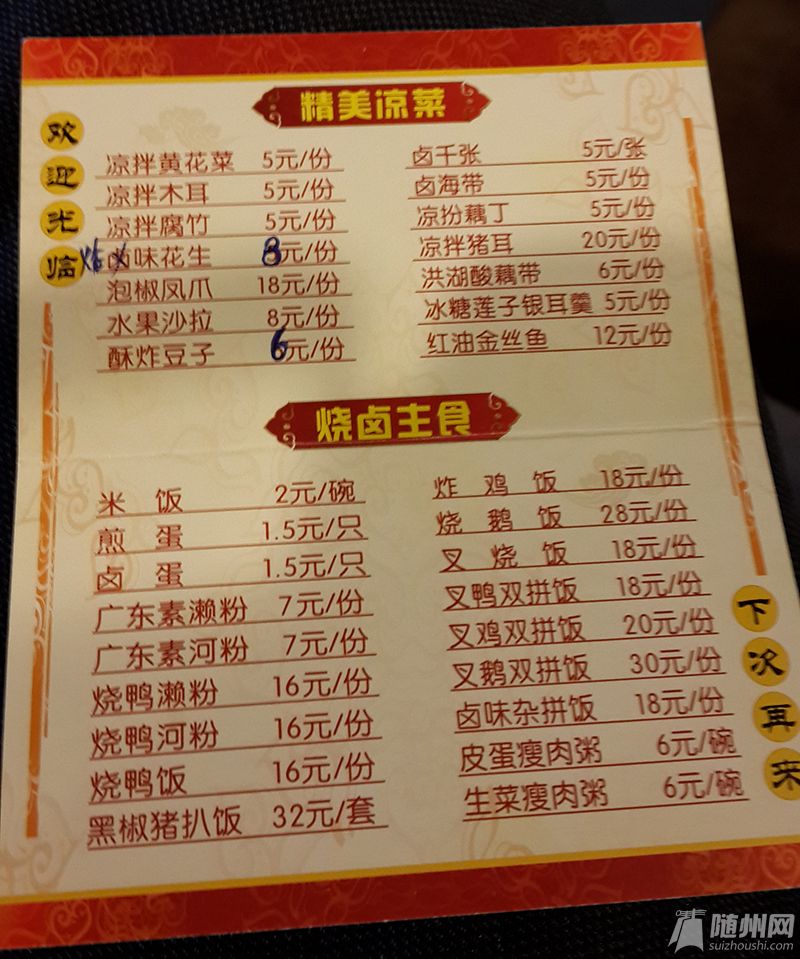 欢迎光临
精美凉菜
凉拌黄花菜 5元/份
凉拌木耳 5元/份
凉拌腐竹 5元/份
卤味花生 8元/份
泡椒凤爪 18元/份
水果沙拉 8元/份
酥炸豆子 6元/份
卤干张 5元/张
卤海带 5元/份
凉扮藕丁 5元/份
凉拌猪耳 20元/份
洪湖酸藕带 6元/份
冰糖莲子银耳羹 5元/份
红油金丝鱼 12元/份
烧卤主食
米饭 2元/碗
煎蛋 1.5元/只
卤蛋 1.5元/只
广东素濑粉 7元/份
广东素河粉 7元/份
烧鸭濑粉 16元/份
烧鸭河粉 16元/份
烧鸭饭 16元/份
黑椒猪扒饭 32元/套
炸鸡饭 18元/份
烧鹅饭 28元/份
叉烧饭 18元/份
叉鸭双拼饭 18元/份
叉鸡双拼饭 20元/份
叉鹅双拼饭 30元/份
卤味杂拼饭 18元/份
皮蛋瘦肉粥 6元/碗
生菜瘦肉粥 6元/碗
下次再来
随州网
suizhoushi.com